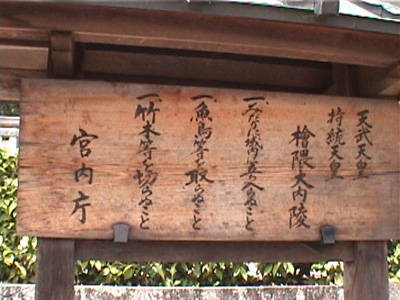 天武天皇
持統天皇
檜隈大内陵
一、みだりに域内に立入らぬこと
一、魚鳥等を取らぬこと
一、竹木等を切らぬこと
宮内庁